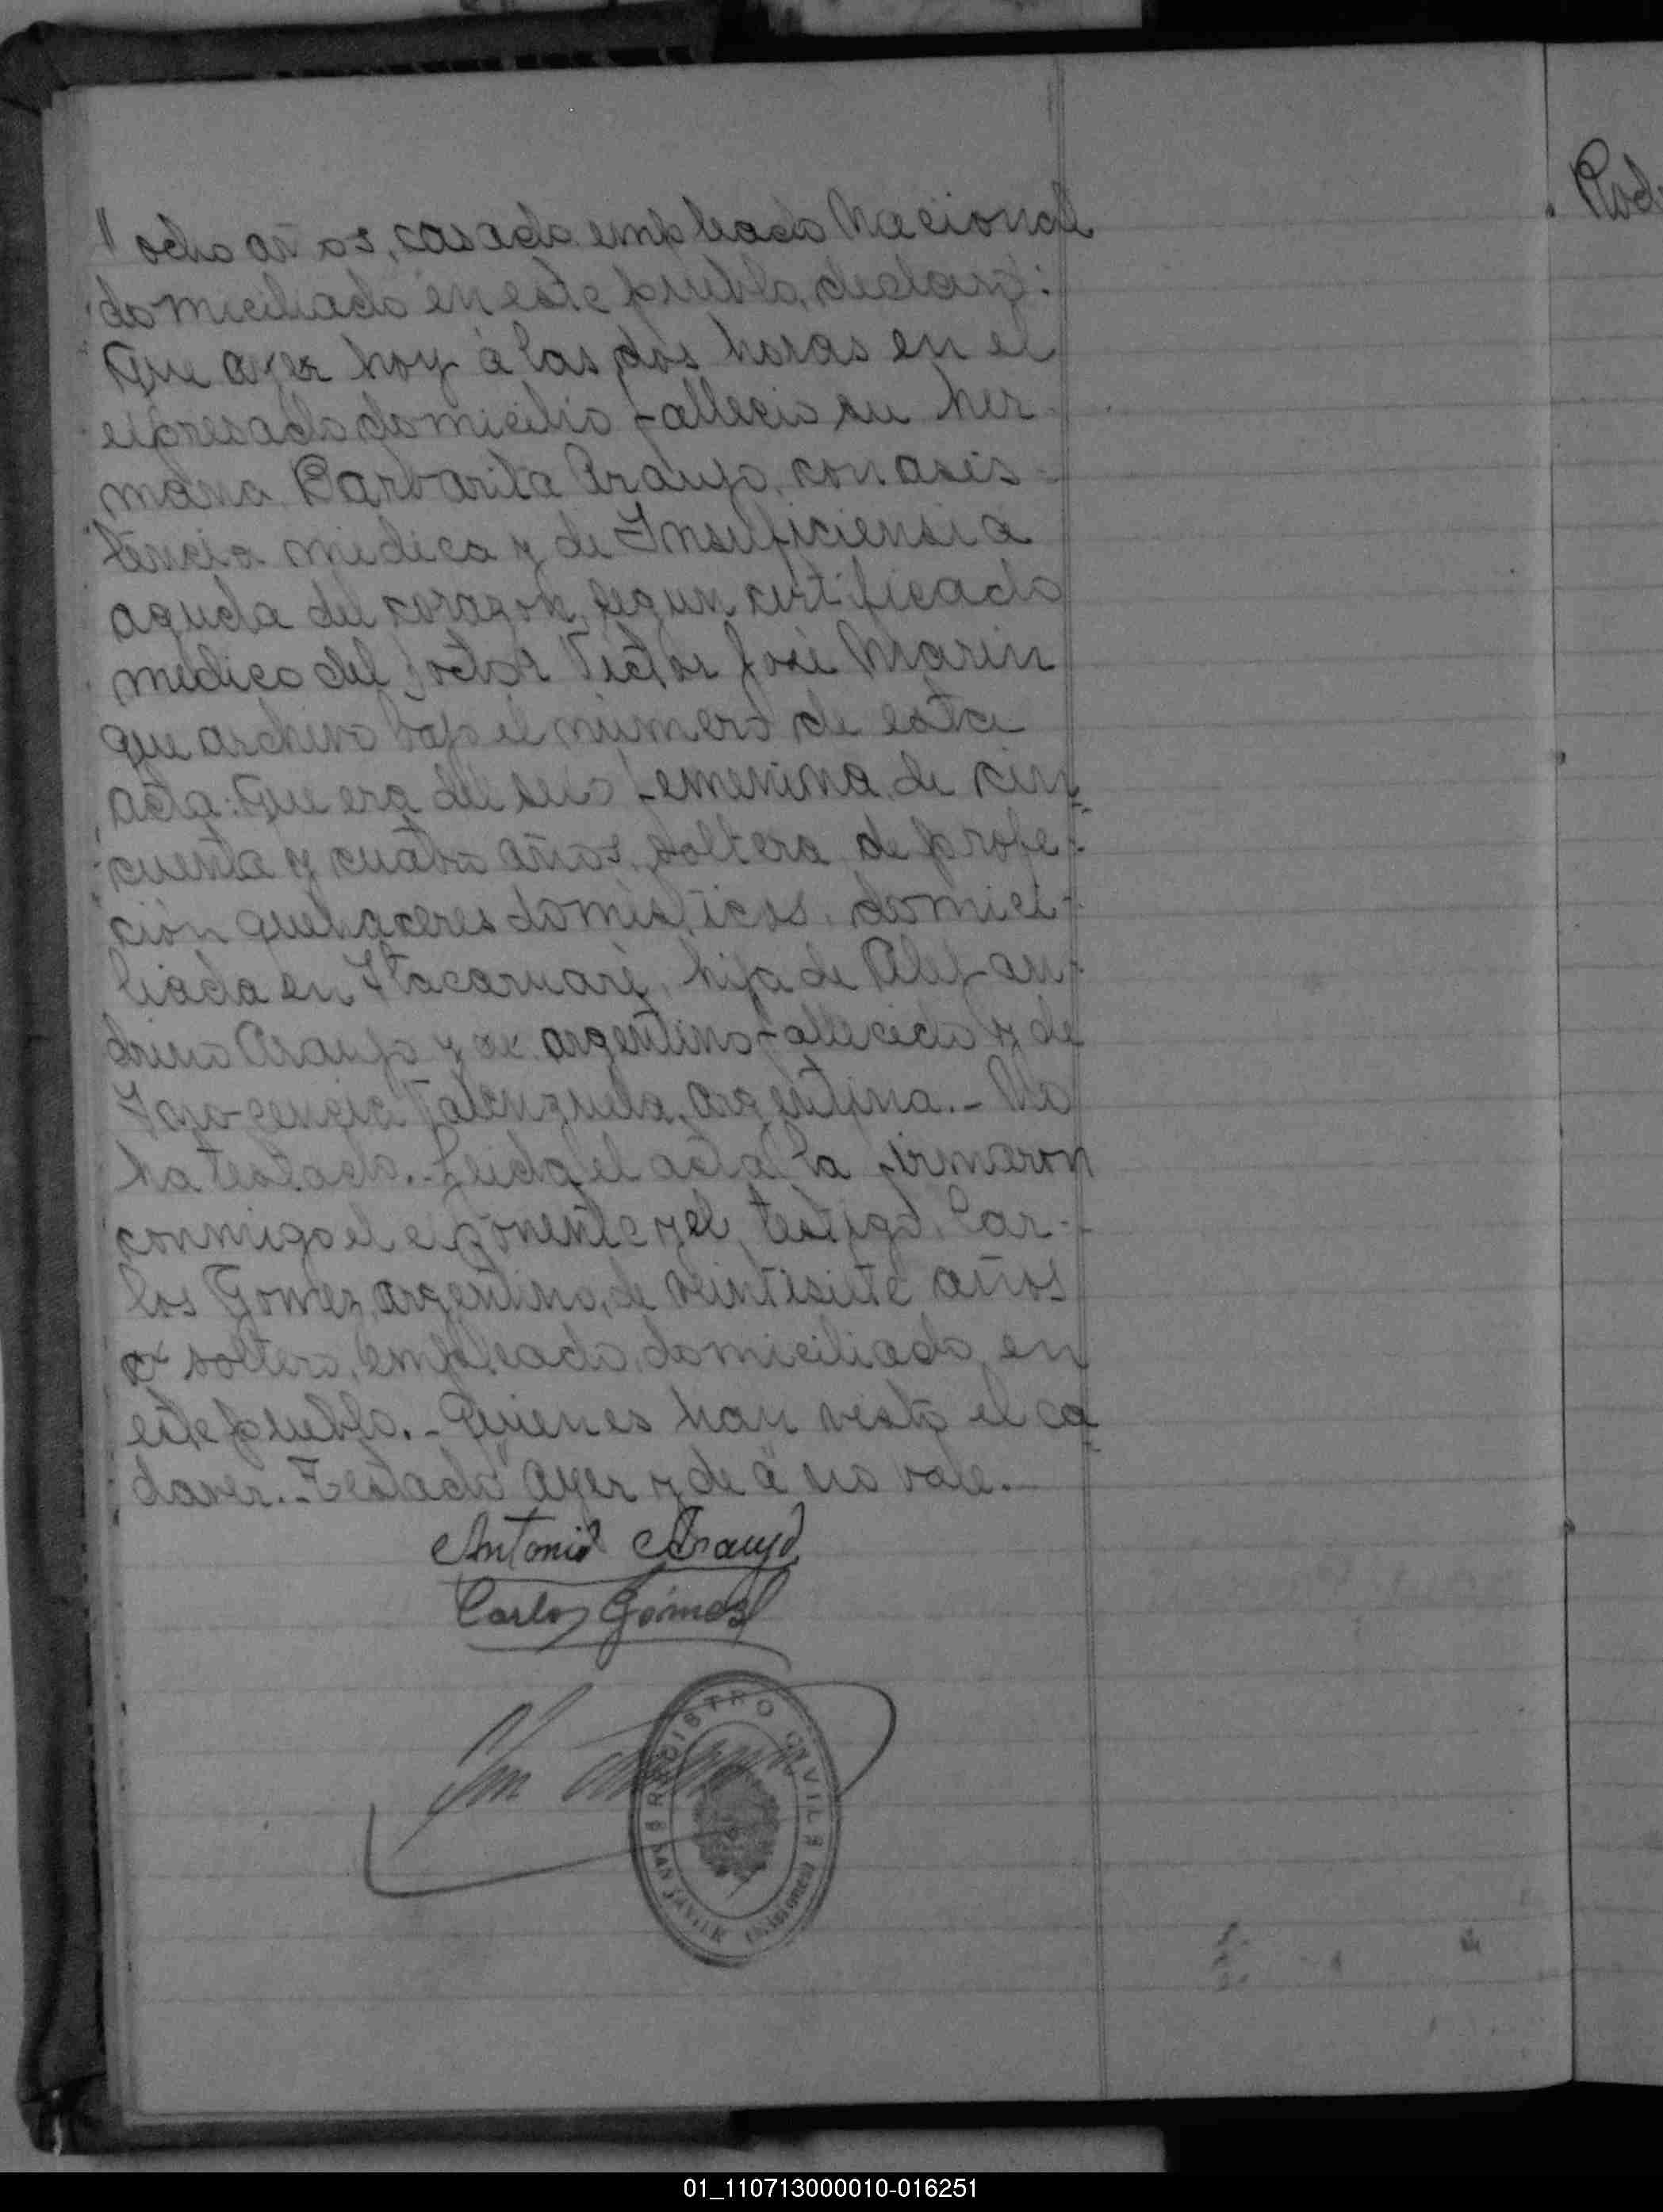 " ocho años, casado empleado Nacional
domiciliado en este pueblo, declaró:
Que ayer hoy á las dos horas en el
expresado domicilio fallecio su her
mana Barbarita Araujo, con asis=
tencia medica y de Insuficiensia
aguda del corazon, segun certificado
medico del Doctor Victor José Marin
que archivo bajo el número de esta
acta: Que era del sexo femenino, de cin=
cuenta y cuatro años, soltera, de profe=
ción quehaceres domésticos, domici=
liada en Itacaruaré, hija de Alejan=
drino Araujo y de argentino fallecido y de
Inocencia Valenzuela, argentina.- No
ha testado.- Leida el acta la firmaron
conmigo el exponente y el testigo, Car-
los Gomez, argentino, de veintisiete años
soltero, empleado, domiciliado, en
este pueblo.- Quienes han visto el ca=
daver.- Testado ayer y de á no vale.-
Antonio Araujo
Carlos Gómez
REGISTRO CIVIL
SAN JAVIER (Misiones)
01_110713000010-016251